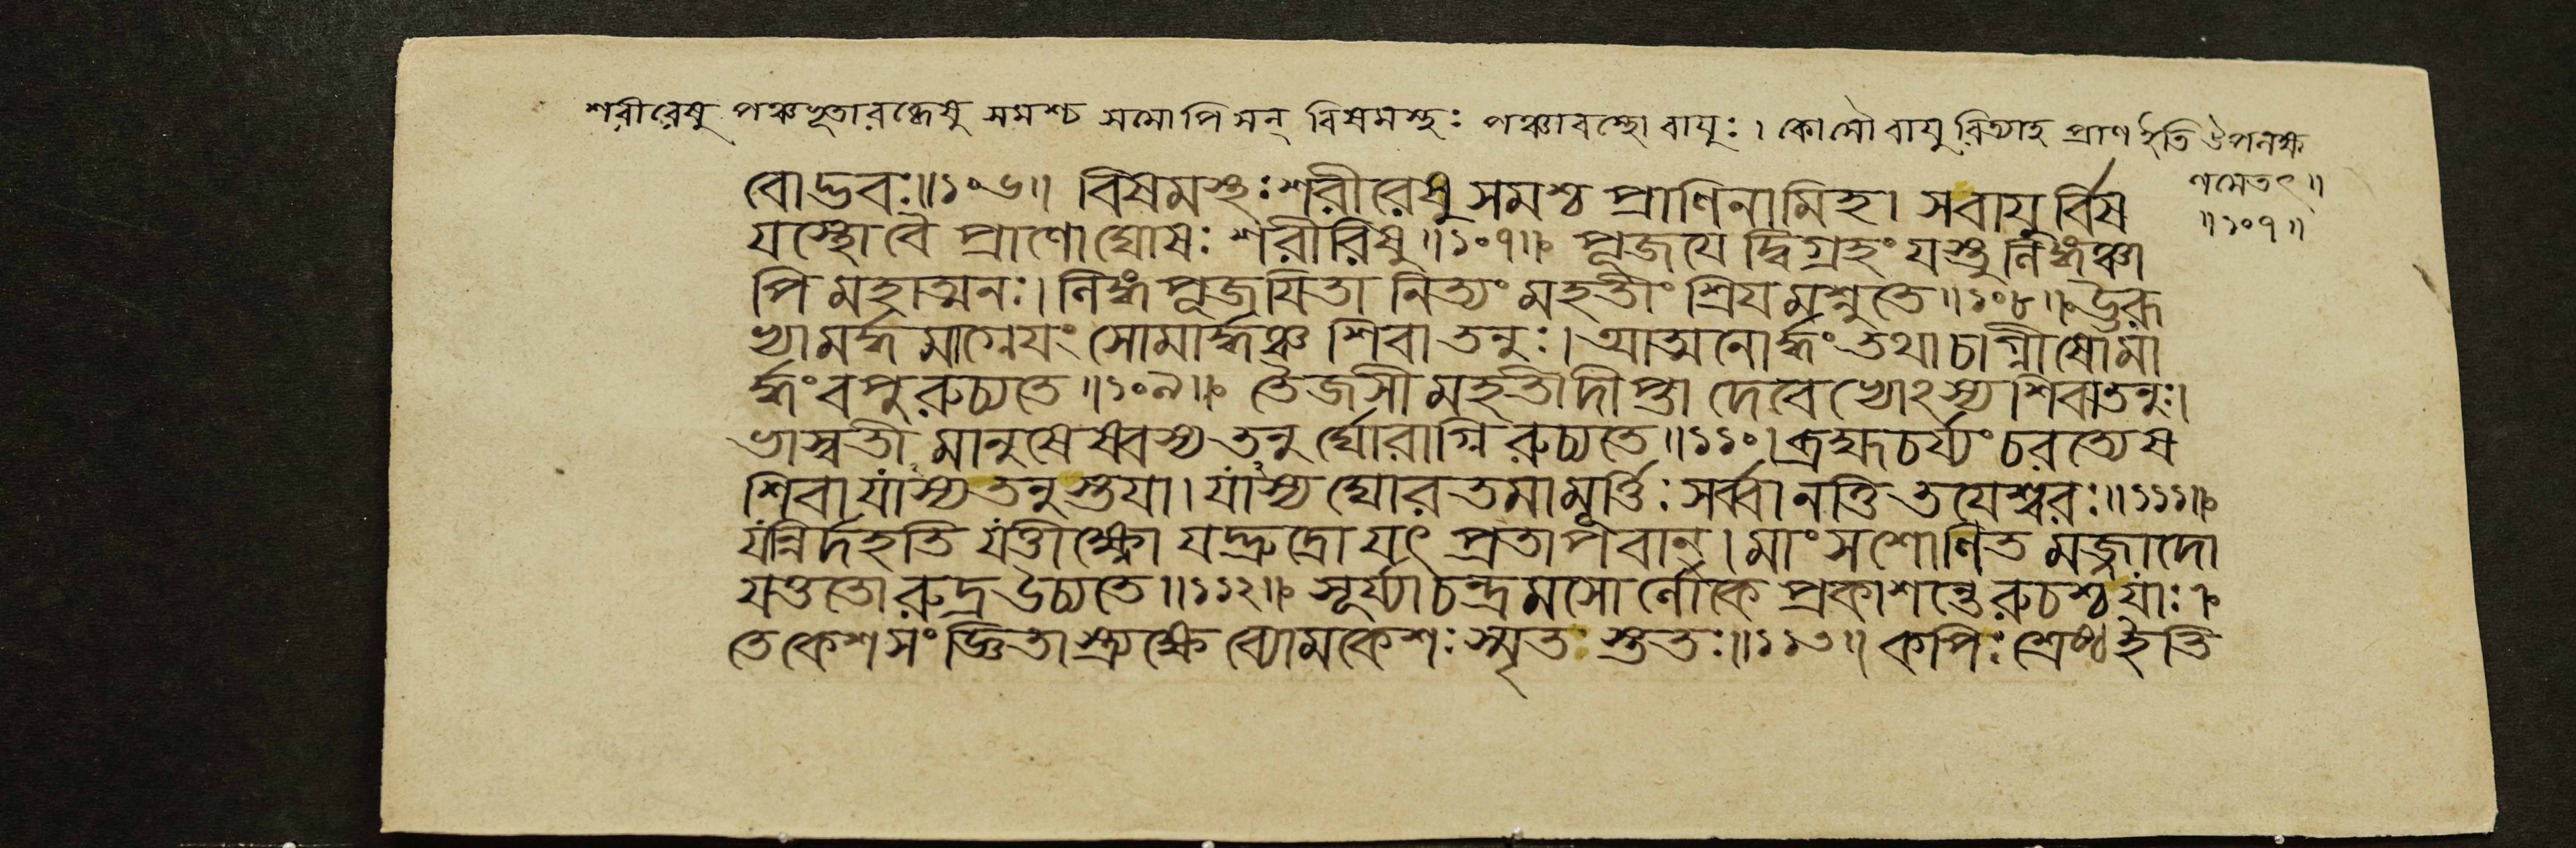 শরীরেষু পঞ্চভূতারব্ধেষু সমশ্চ সমোপি সন্ বিষমস্থঃ পঞ্চাবস্থো বাযুঃ। কোসৌ বাযুরিত্যাহ প্রাণ ইতি উপলক্ষ
ণমেতৎ॥
॥১০৭॥
বোদ্ভবঃ॥১০৬॥ বিষমস্থঃ শরীরেষু সমশ্চ প্রাণিনামিহ। স বাযুর্বিষ
যস্থো বৈ প্রাণো ঘোষঃ শরীরিষু॥১০৭॥ পূজযেদ্বিগ্রহং যস্তু লিঙ্গঞ্চা
পি মহাত্মনঃ। লিঙ্গং পূজযিতা নিত্যং মহতীং শ্রিযমশ্নুতে॥১০৮॥ ঊরূ
খ্যামর্দ্ধমাগ্নেযং সোমার্দ্ধঞ্চ শিবা তনুঃ। আত্মনোর্দ্ধং তথা চাগ্নীষোমা
র্দ্ধং বপুরুচ্যতে॥১০৯॥ তৈজসী মহতী দীপ্তা দেবেভ্যোঽস্য শিবা তনুঃ।
ভাস্বতী মানুষেষ্বেবস্য তনুর্ঘোরাগ্নিরুচ্যতে॥১১০। ব্রহ্মচর্য্যং চরত্যেষ
শিবা যাস্য তনুস্তযা। যাস্য ঘোরতমা মূর্ত্তিঃ সর্ব্বানত্তি তযেশ্বরঃ॥১১১॥
যন্নির্দহতি যত্তীক্ষ্ণো যদ্রুদ্রো যৎ প্রতাপবান্। মাংসশোণিতমজ্জাদো
যত্ততো রুদ্র উচ্যতে॥১১২॥ সূর্য্যাচন্দ্রমসোর্লোকে প্রকাশন্তে রুচশ্চ যাঃ।
তে কেশসংজ্ঞিতাস্ত্র্যক্ষে ব্যোমকেশঃ স্মৃতঃ স্তুতঃ॥১১৩॥ কপিঃ শ্রেষ্ঠ ইতি